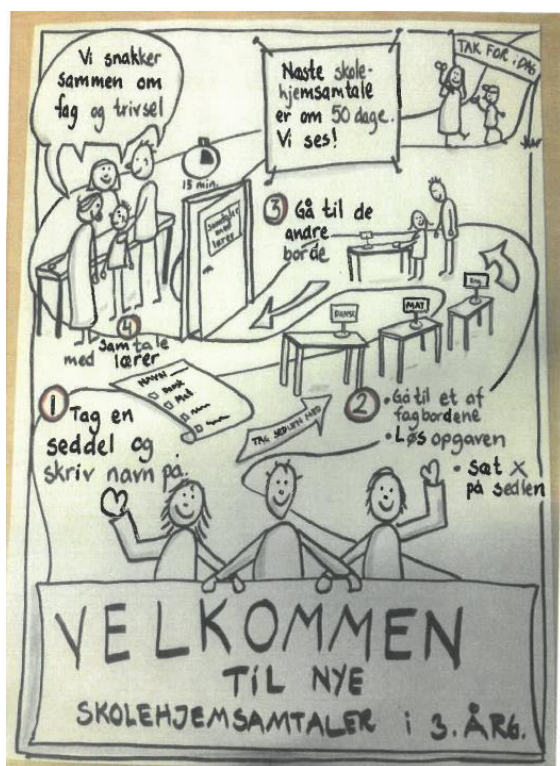 Vi snakker
sammen om
fag og trivsel
Næste skole-
hjemsamtale
er om 50 dage.
Vi ses!
TAK FOR i DAG
15 min.
samtaler
med
lærer
3 Gå til de
andre
borde
DANSK
MAT
4
Samtale
med lærer
NAVN
Dansk
Mat
1 Tag en
seddel og
skriv navn på.
TAG SEDLEN MED
2 • Gå til et af
fagbordene
• Løs opgaven
• Sæt X
på sedlen
VELKOMMEN
TiL NYE
SKOLEHJEMSAMTALER i 3. ÅRG.